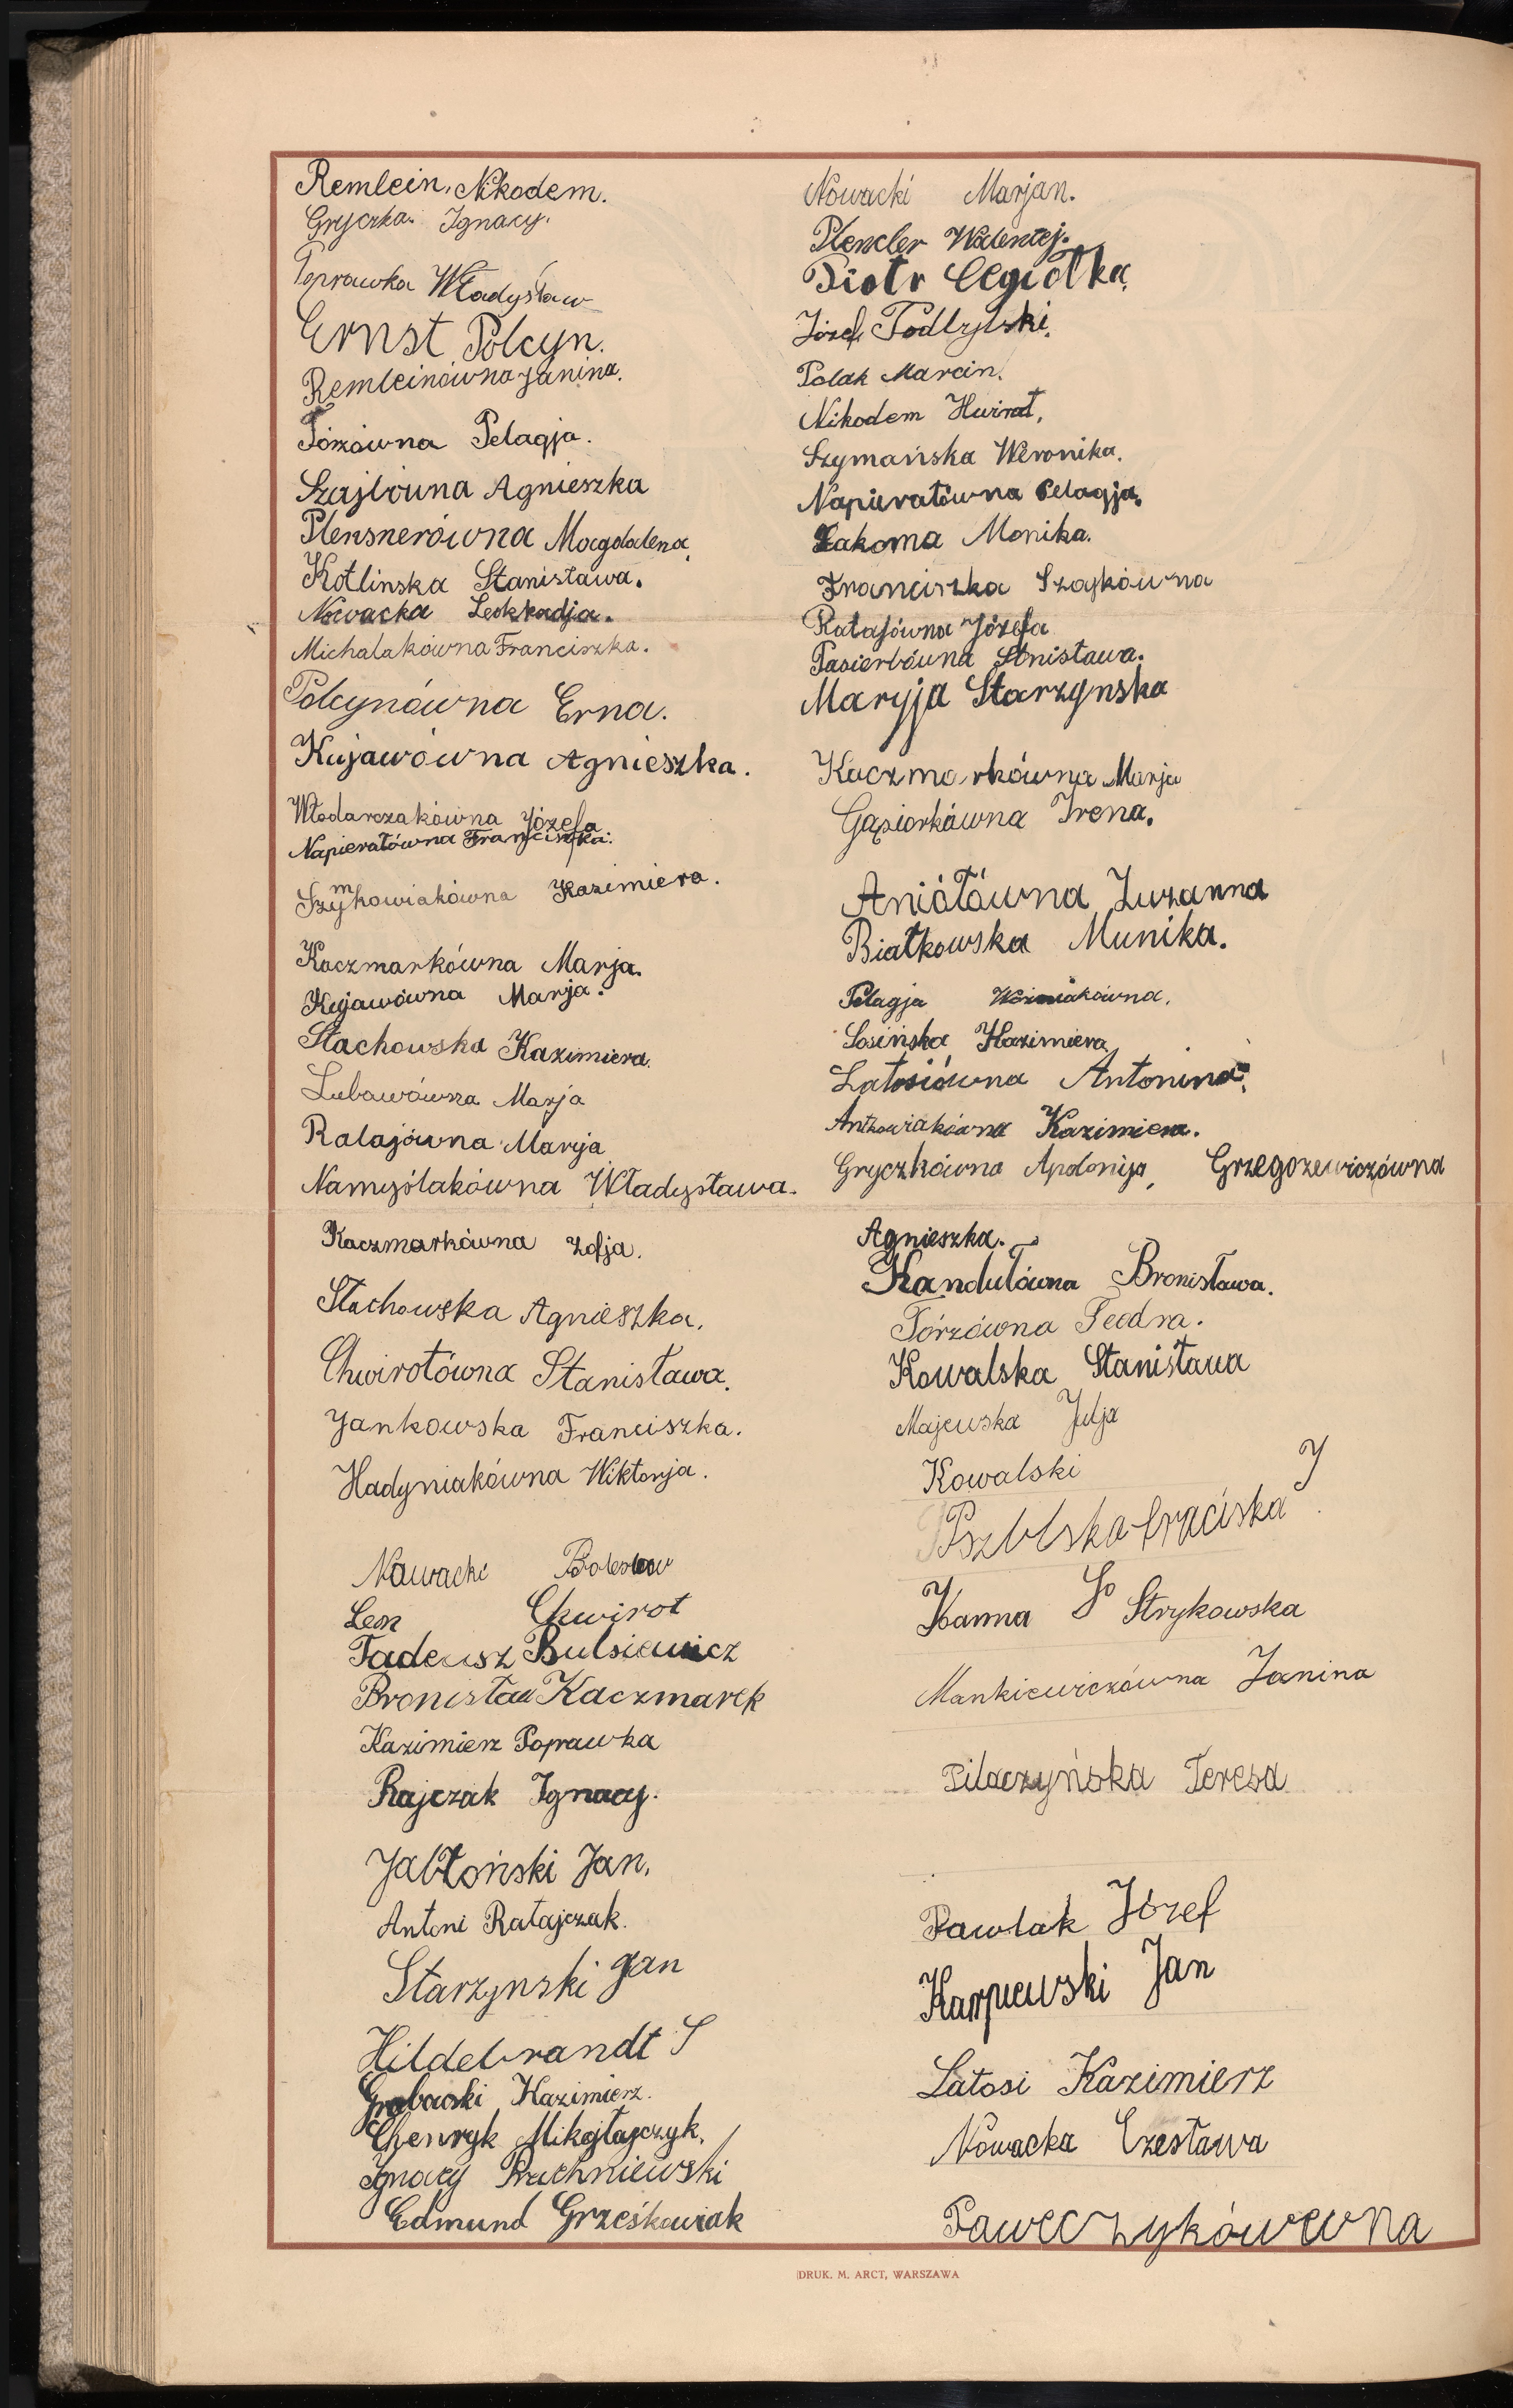 Remlein, Nikodem.
Gryczka. Ignacy.
Poprawka Władysław
Ernst Polcyn.
Remleinówna Janina.
Tórzówna Pelagja.
Szajbówna Agnieszka
Plensnerówna Magdalena.
Kotlinska Stanisława.
Nowacka Leokkadja.
Michalakówna Franciszka.
Polcynówna Erna.
Kujawówna Agnieszka.
Włodarczakówna Józefa
Napierałówna Franciszka.
Szymkowiakówna Kazimiera.
Kaczmarkówna Marja.
Kujawówna Marja.
Stachowska Kazimiera.
Lubawówna Marja
Ratajówna Maryja
Namyślakówna Władysława.
Kaczmarkówna Zofja.
Stachowska Agnieszka.
Chwirotówna Stanisława.
Jankowska Franciszka.
Hadyniakówna Wiktorja.
Nawacki Bolesław
Leon Chwirot
Tadeusz Bulsiewicz
Bronisław Kaczmarek
Kazimierz Poprawka
Rajczak Ignacy.
Jabłoński Jan.
Antoni Ratajczak.
Starzynski Jan
Hildebrandt S
Grabarski Kazimierz.
Chenryk Mikołajczyk.
Ignacy Pruchniewski
Edmund Grześkowiak
Nowacki Marjan.
Plenzler Walentej.
Piotr Cegiołka.
Józef Podbylski.
Polak Marcin.
Nikodem Hwirot.
Szymańska Weronika.
Napierałówna Pelagja.
Łakoma Monika.
Franciszka Szajkówna
Ratajówna Józefa
Pasierbówna Stnisława.
Maryja Starzynska
Kaczmarkówna Marja
Gąsiorkówna Irena.
Aniołówna Zuzanna
Białkowska Munika.
Pelagja Woźniakówna.
Sosińska Kazimiera
Latosiówna Antonina.
Antkowiakówna Kazimiera.
Gryczkówna Apolonija, Grzegorzewiczówna
Agnieszka.
Kandulówna Bronisława.
Tórzówna Teodra.
Kowalska Stanisława
Majewska Julja
Kowalski J
Pszblska Fraciska
Joanna S Strykowska
Mankiewiczówna Janina
Pilaczyńska Teresa
Pawlak Józef
Karpiewski Jan
Latosi Kazimierz
Nowacka Czesława
Paweczykówewna
DRUK. M. ARCT, WARSZAWA